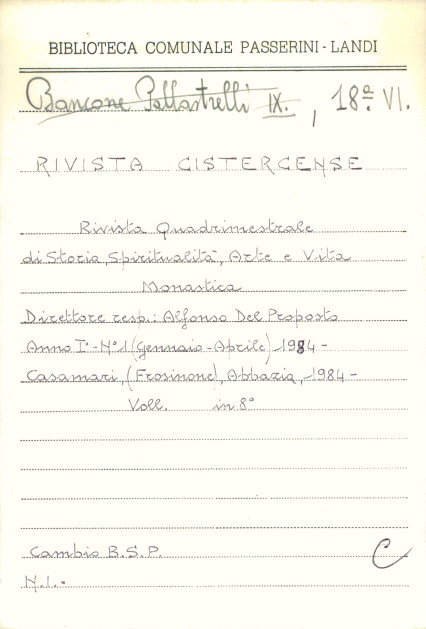 BIBLIOTECA COMUNALE PASSERINI - LANDI
Bancone Pallastrelli IX. , 18ª. VI.
RIVISTA CISTERCENSE
Rivista Quadrimestrale
di Storia, Spiritualità, Arte e Vita
Monastica
Direttore resp.: Alfonso Del Proposto
Anno I°-N°1 (Gennaio-Aprile) 1984-
Casamari, (Frosinone), Abbazia, 1984-
Voll. in 8°
Cambio B.S.P.
C
N.I.-